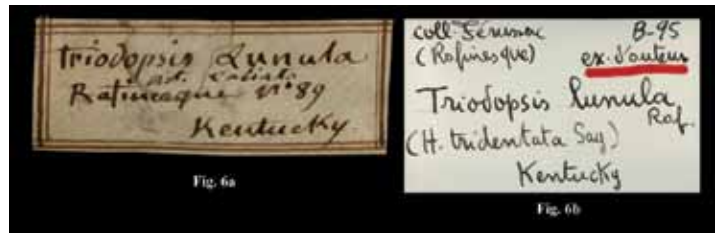 Triodopsis Lunula
Rafinesque n° 89
Kentucky
Fig. 6a
coll. Férussac
B-95
(Rafinesque)
ex. d'auteur
Triodopsis lunula
Raf.
(H. tridentata Say)
Kentucky
Fig. 6b